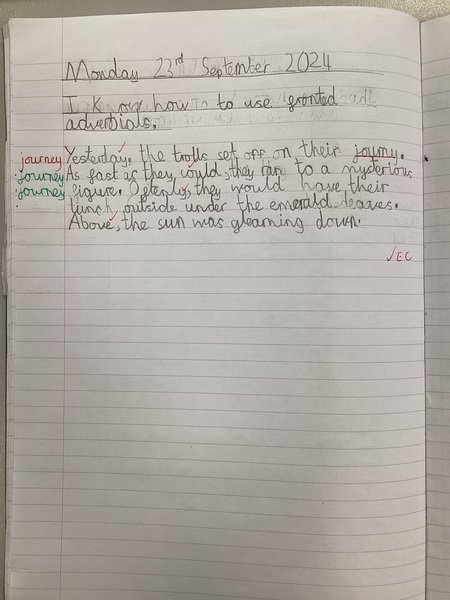 Monday 23rd September 2024
I K now how to use gronted
adverbials.
journey Yesterday, the trolls set off on their journy.
journey As fast as they could, they ran to a mysterious
journey figure. Oftenly, they would have their
lunch outside under the emerald leaves.
Above, the sun was gleaming down.
✓EC